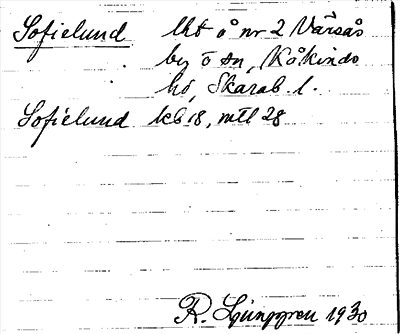 Sofielund lht å nr 2 Vårsås
by o sn, Kåkinds
hd, Skarab. l.
Sofielund kb 18, mtl 28
R. Ljunggren 1930